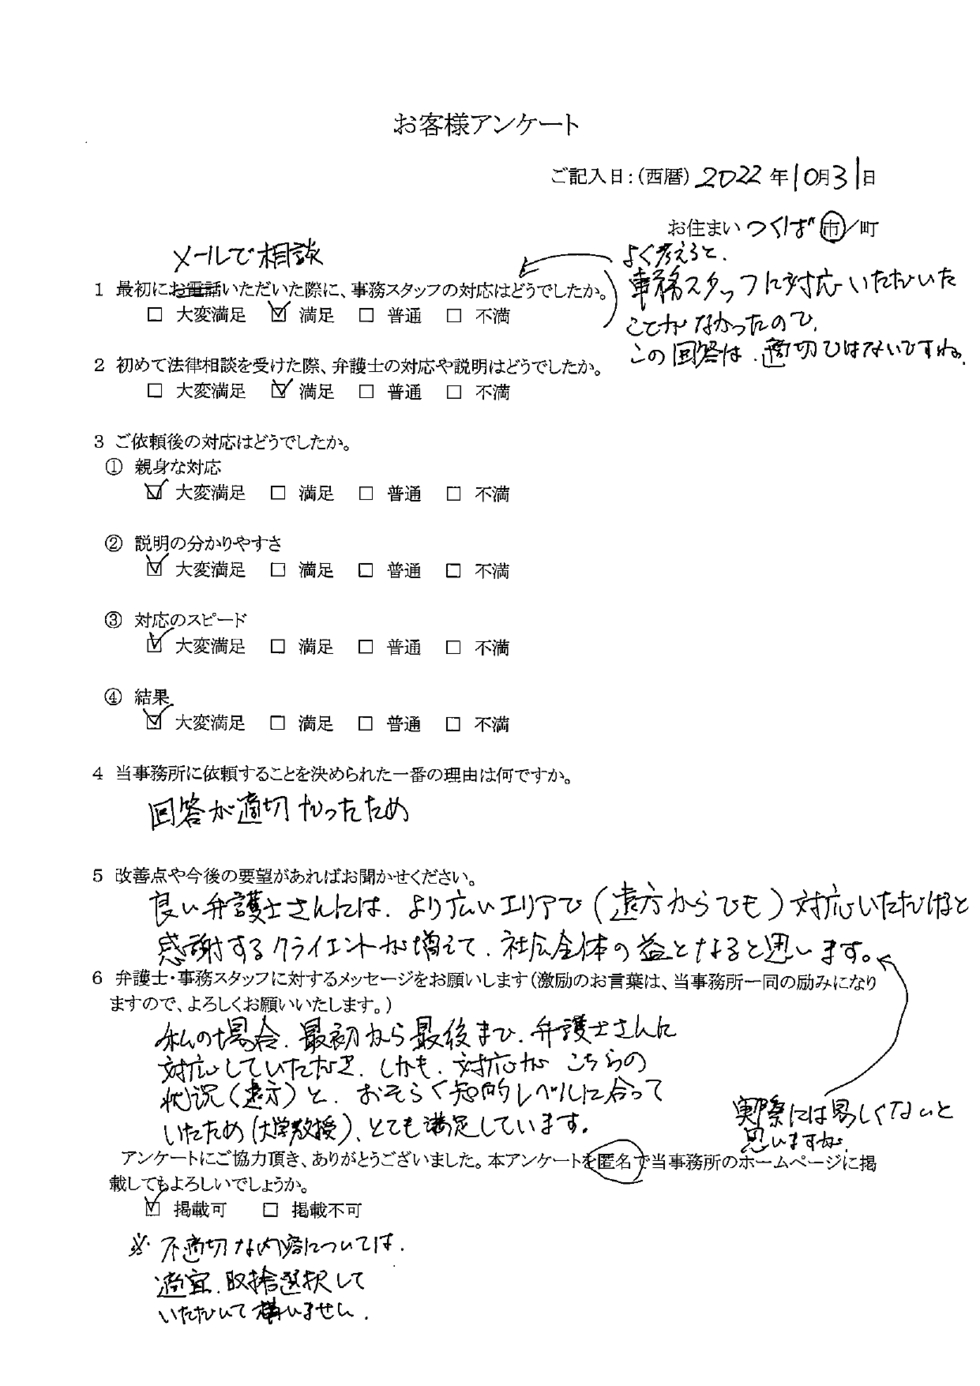 お客様アンケート
ご記入日：（西暦）2022年10月31日
お住まい つくば 市／町
メールで相談
よく考えると、
1 最初にお電話いただいた際に、事務スタッフの対応はどうでしたか。
事務スタッフに対応いただいた
□ 大変満足 ☑ 満足 □ 普通 □ 不満
ことがなかったので、
この回答は、適切ではないですね。
2 初めて法律相談を受けた際、弁護士の対応や説明はどうでしたか。
□ 大変満足 ☑ 満足 □ 普通 □ 不満
3 ご依頼後の対応はどうでしたか。
① 親身な対応
☑ 大変満足 □ 満足 □ 普通 □ 不満
② 説明の分かりやすさ
☑ 大変満足 □ 満足 □ 普通 □ 不満
③ 対応のスピード
☑ 大変満足 □ 満足 □ 普通 □ 不満
④ 結果
☑ 大変満足 □ 満足 □ 普通 □ 不満
4 当事務所に依頼することを決められた一番の理由は何ですか。
回答が適切だったため
5 改善点や今後の要望があればお聞かせください。
良い弁護士さんには、より広いエリアで（遠方からでも）対応いただけると
感謝するクライエントが増えて、社会全体の益となると思います。
6 弁護士・事務スタッフに対するメッセージをお願いします（激励のお言葉は、当事務所一同の励みになり
ますので、よろしくお願いいたします。）
私の場合、最初から最後まで、弁護士さんに
対応していただき、しかも、対応が こちらの
状況（遠方）と、おそらく知的レベルに合って
いたため（大学教授）、とても満足しています。
実際には易しくないと
思いますが。
アンケートにご協力頂き、ありがとうございました。本アンケートを匿名で当事務所のホームページに掲
載してもよろしいでしょうか。
☑ 掲載可 □ 掲載不可
※ 不適切な内容については、
適宜、取捨選択して
いただいて構いません。